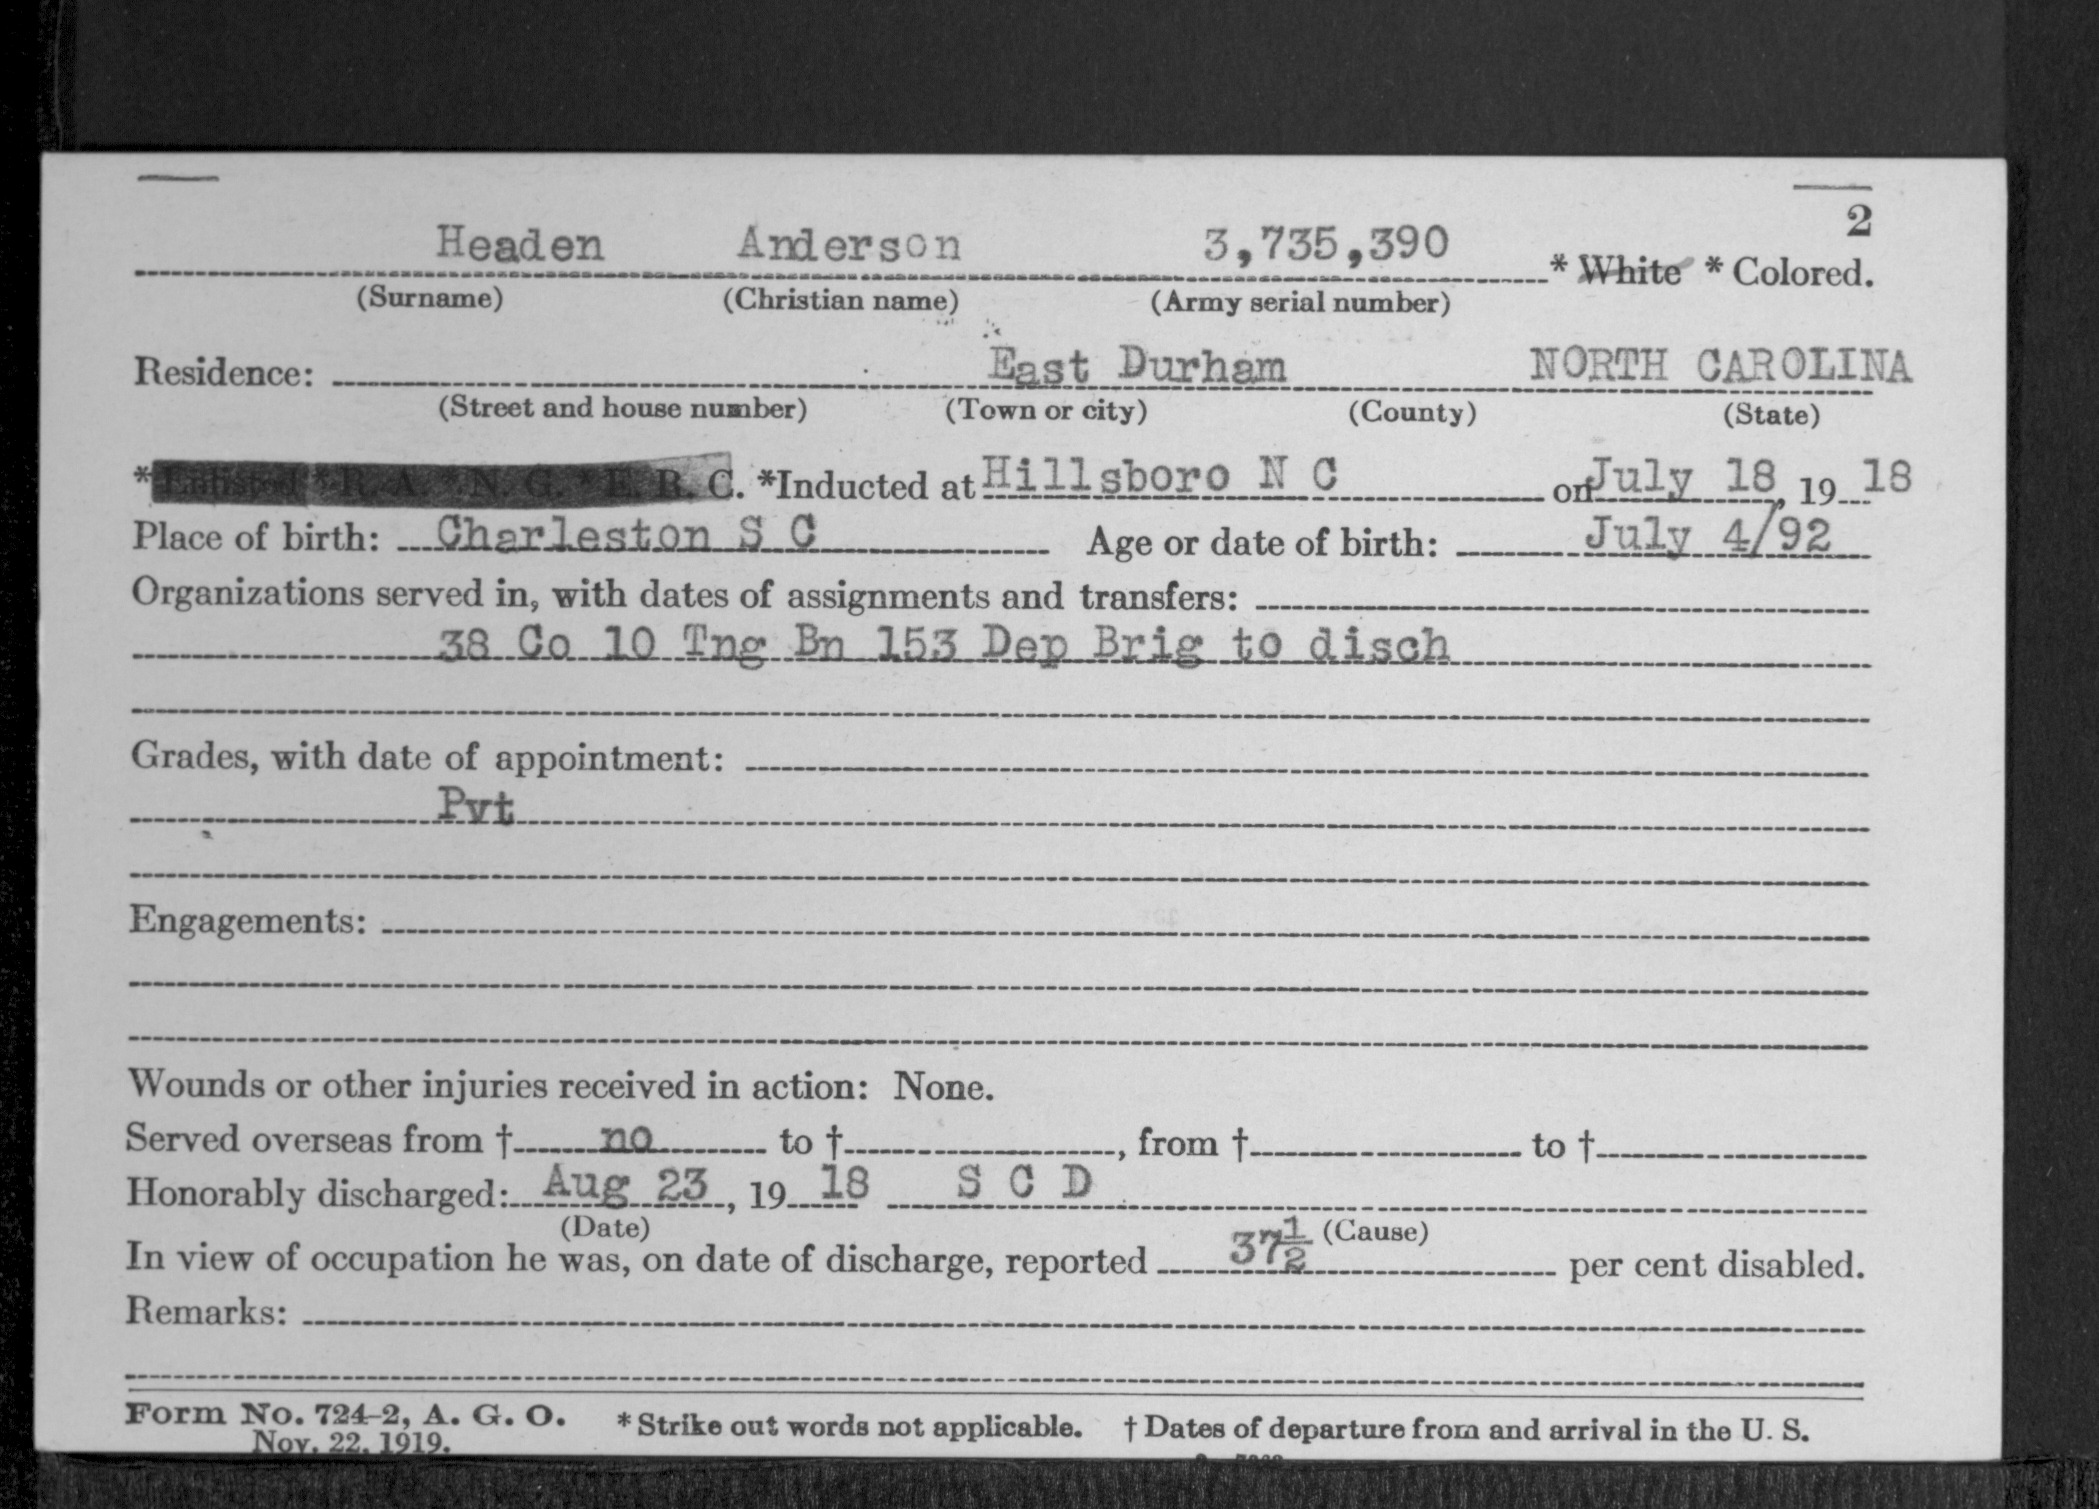 2
Headen Anderson 3,735,390 * White * Colored.
(Surname) (Christian name) (Army serial number)
Residence: East Durham NORTH CAROLINA
(Street and house number) (Town or city) (County) (State)
* Enlisted * R. A. * N. G. * E. R. C. *Inducted at Hillsboro N C on July 18, 19 18
Place of birth: Charleston S C Age or date of birth: July 4/92
Organizations served in, with dates of assignments and transfers:
38 Co 10 Tng Bn 153 Dep Brig to disch
Grades, with date of appointment:
Pvt
Engagements:
Wounds or other injuries received in action: None.
Served overseas from † no to †, from † to †
Honorably discharged: Aug 23, 19 18 S C D
(Date) (Cause)
In view of occupation he was, on date of discharge, reported 37½ per cent disabled.
Remarks:
Form No. 724-2, A. G. O. * Strike out words not applicable. † Dates of departure from and arrival in the U. S.
Nov. 22, 1919.